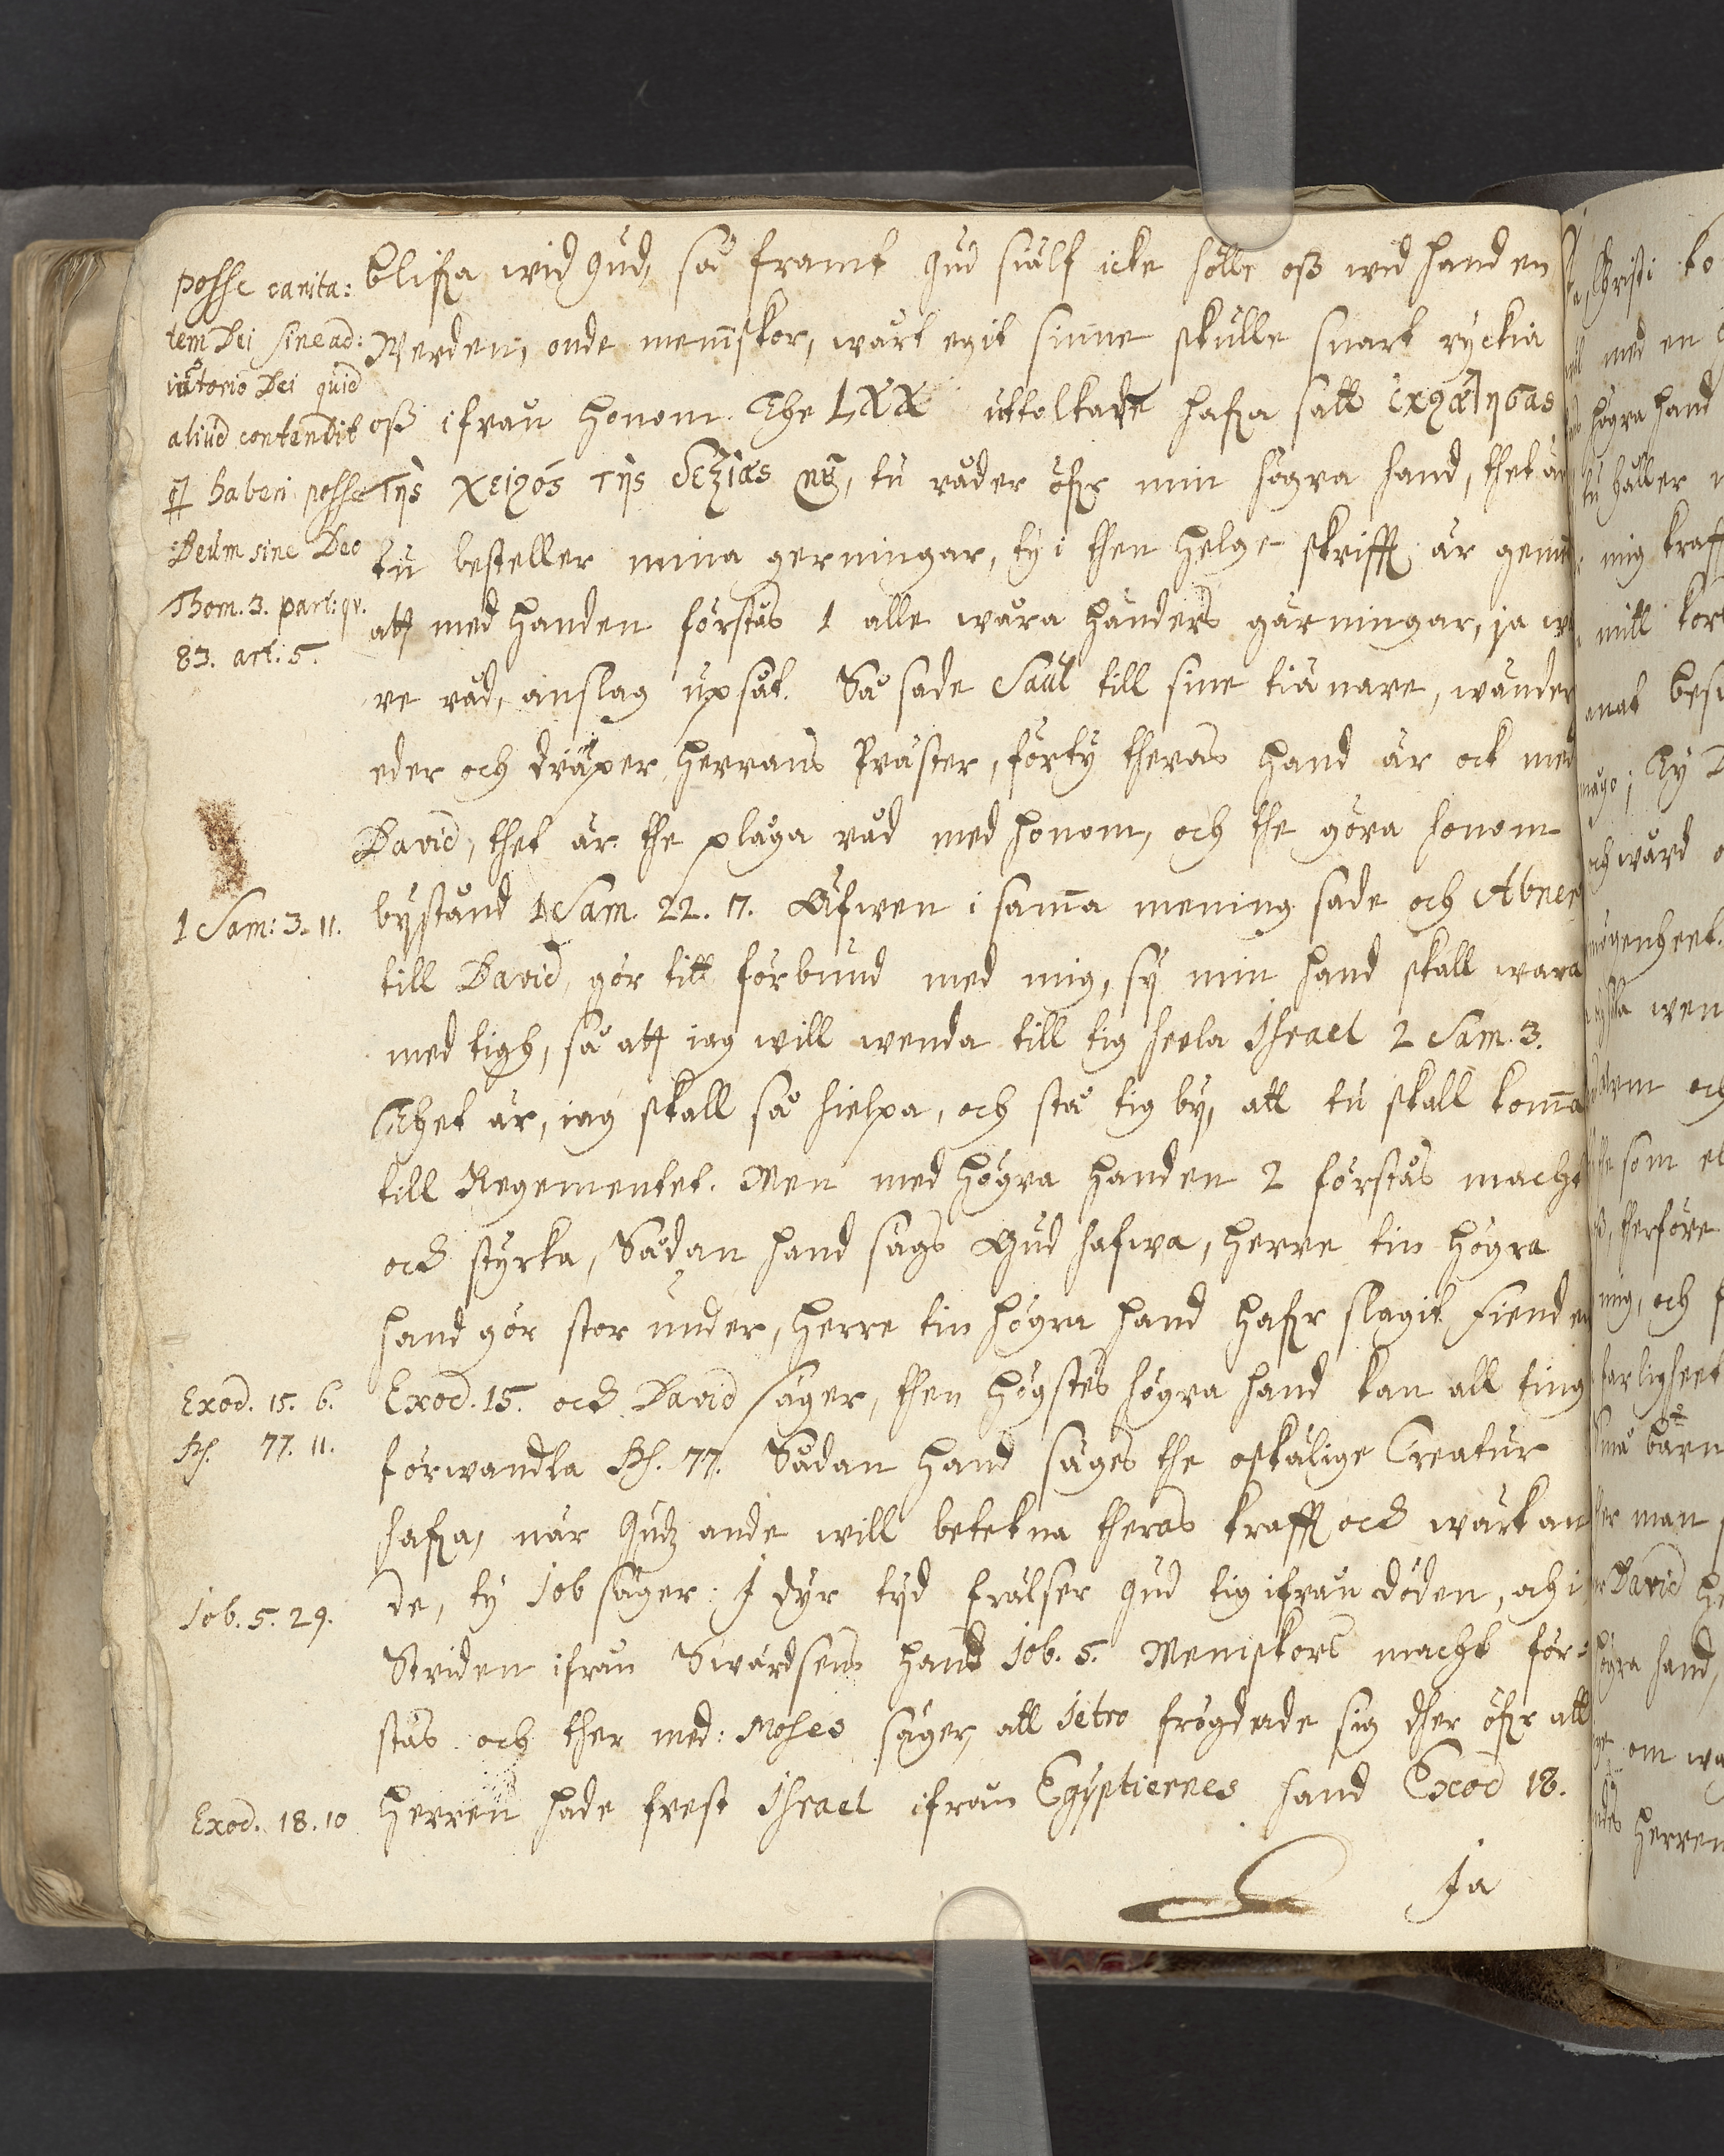 posse carita:
tem Dei sine ad:
iutorio Dei quid
aliud contendit
haberi posse
Deum sine Deo
Thom. 3. part: qv.
83. art. 5.
1 Sam: 3. 11.
Exod. 15. 6.
Ps. 77. 11.
Iob. 5. 29.
Exod. 18. 10
blifva wid Gud, så framt Gud siälf icke hölle oss wid handen
Werden, onde menniskor, wårt egit sinne skulle snart ryckia
oss ifrån honom. The LXX uttolkare hafva satt ἐκράτησας
τῆς χειρός τῆς δεξιᾶς μȣ, tu råder öfver min högra hand, thet är
tu besteller mina gerningar, ty i then helge skrifft är gemen
att med handen förstås 1 alle wåra händers gärningar, ja wå
re råd, anslag upsåt. Så sade Saul till sine tiänare, wänder
eder och dräper herrans Präster, förty theras hand är ock med
David, thet är the pläga råd med honom, och the göra honom
bystånd 1 Sam. 22. 17. Äfwen i samma mening sade och Abner
till David, gör titt förbund med mig, sy min hand skall wara
med tigh, så att iag will wenda till tig heela Israel 2 Sam. 3.
Thet är, iag skall så hielpa, och stå tig by, att tu skall komma
till Regementet. Men med högra handen 2 förstås macht
och styrka, Sådan hand sägs Gud hafwa, herre tin högra
hand gör stor under, herre tin högra hand hafver slagit Fienden
Exod. 15. och David säger, then högstes högra hand kan all ting
förwandla Ps. 77. Sådan hand säges the oskälige Creatur
hafva, när Gudz ande will betekna theras krafft och wärkan
de, ty Iob säger: I dyr tyd frälser Gud tig ifrån döden, och i
Striden ifrån Swärdsens hand Iob. 5. Menniskors macht för:
stås och ther med: Moses säger, att Ietro frögdade sig ther öfver att
Herren hade frest Israel ifrån Egyptiernes hand Exod 18.
Ja